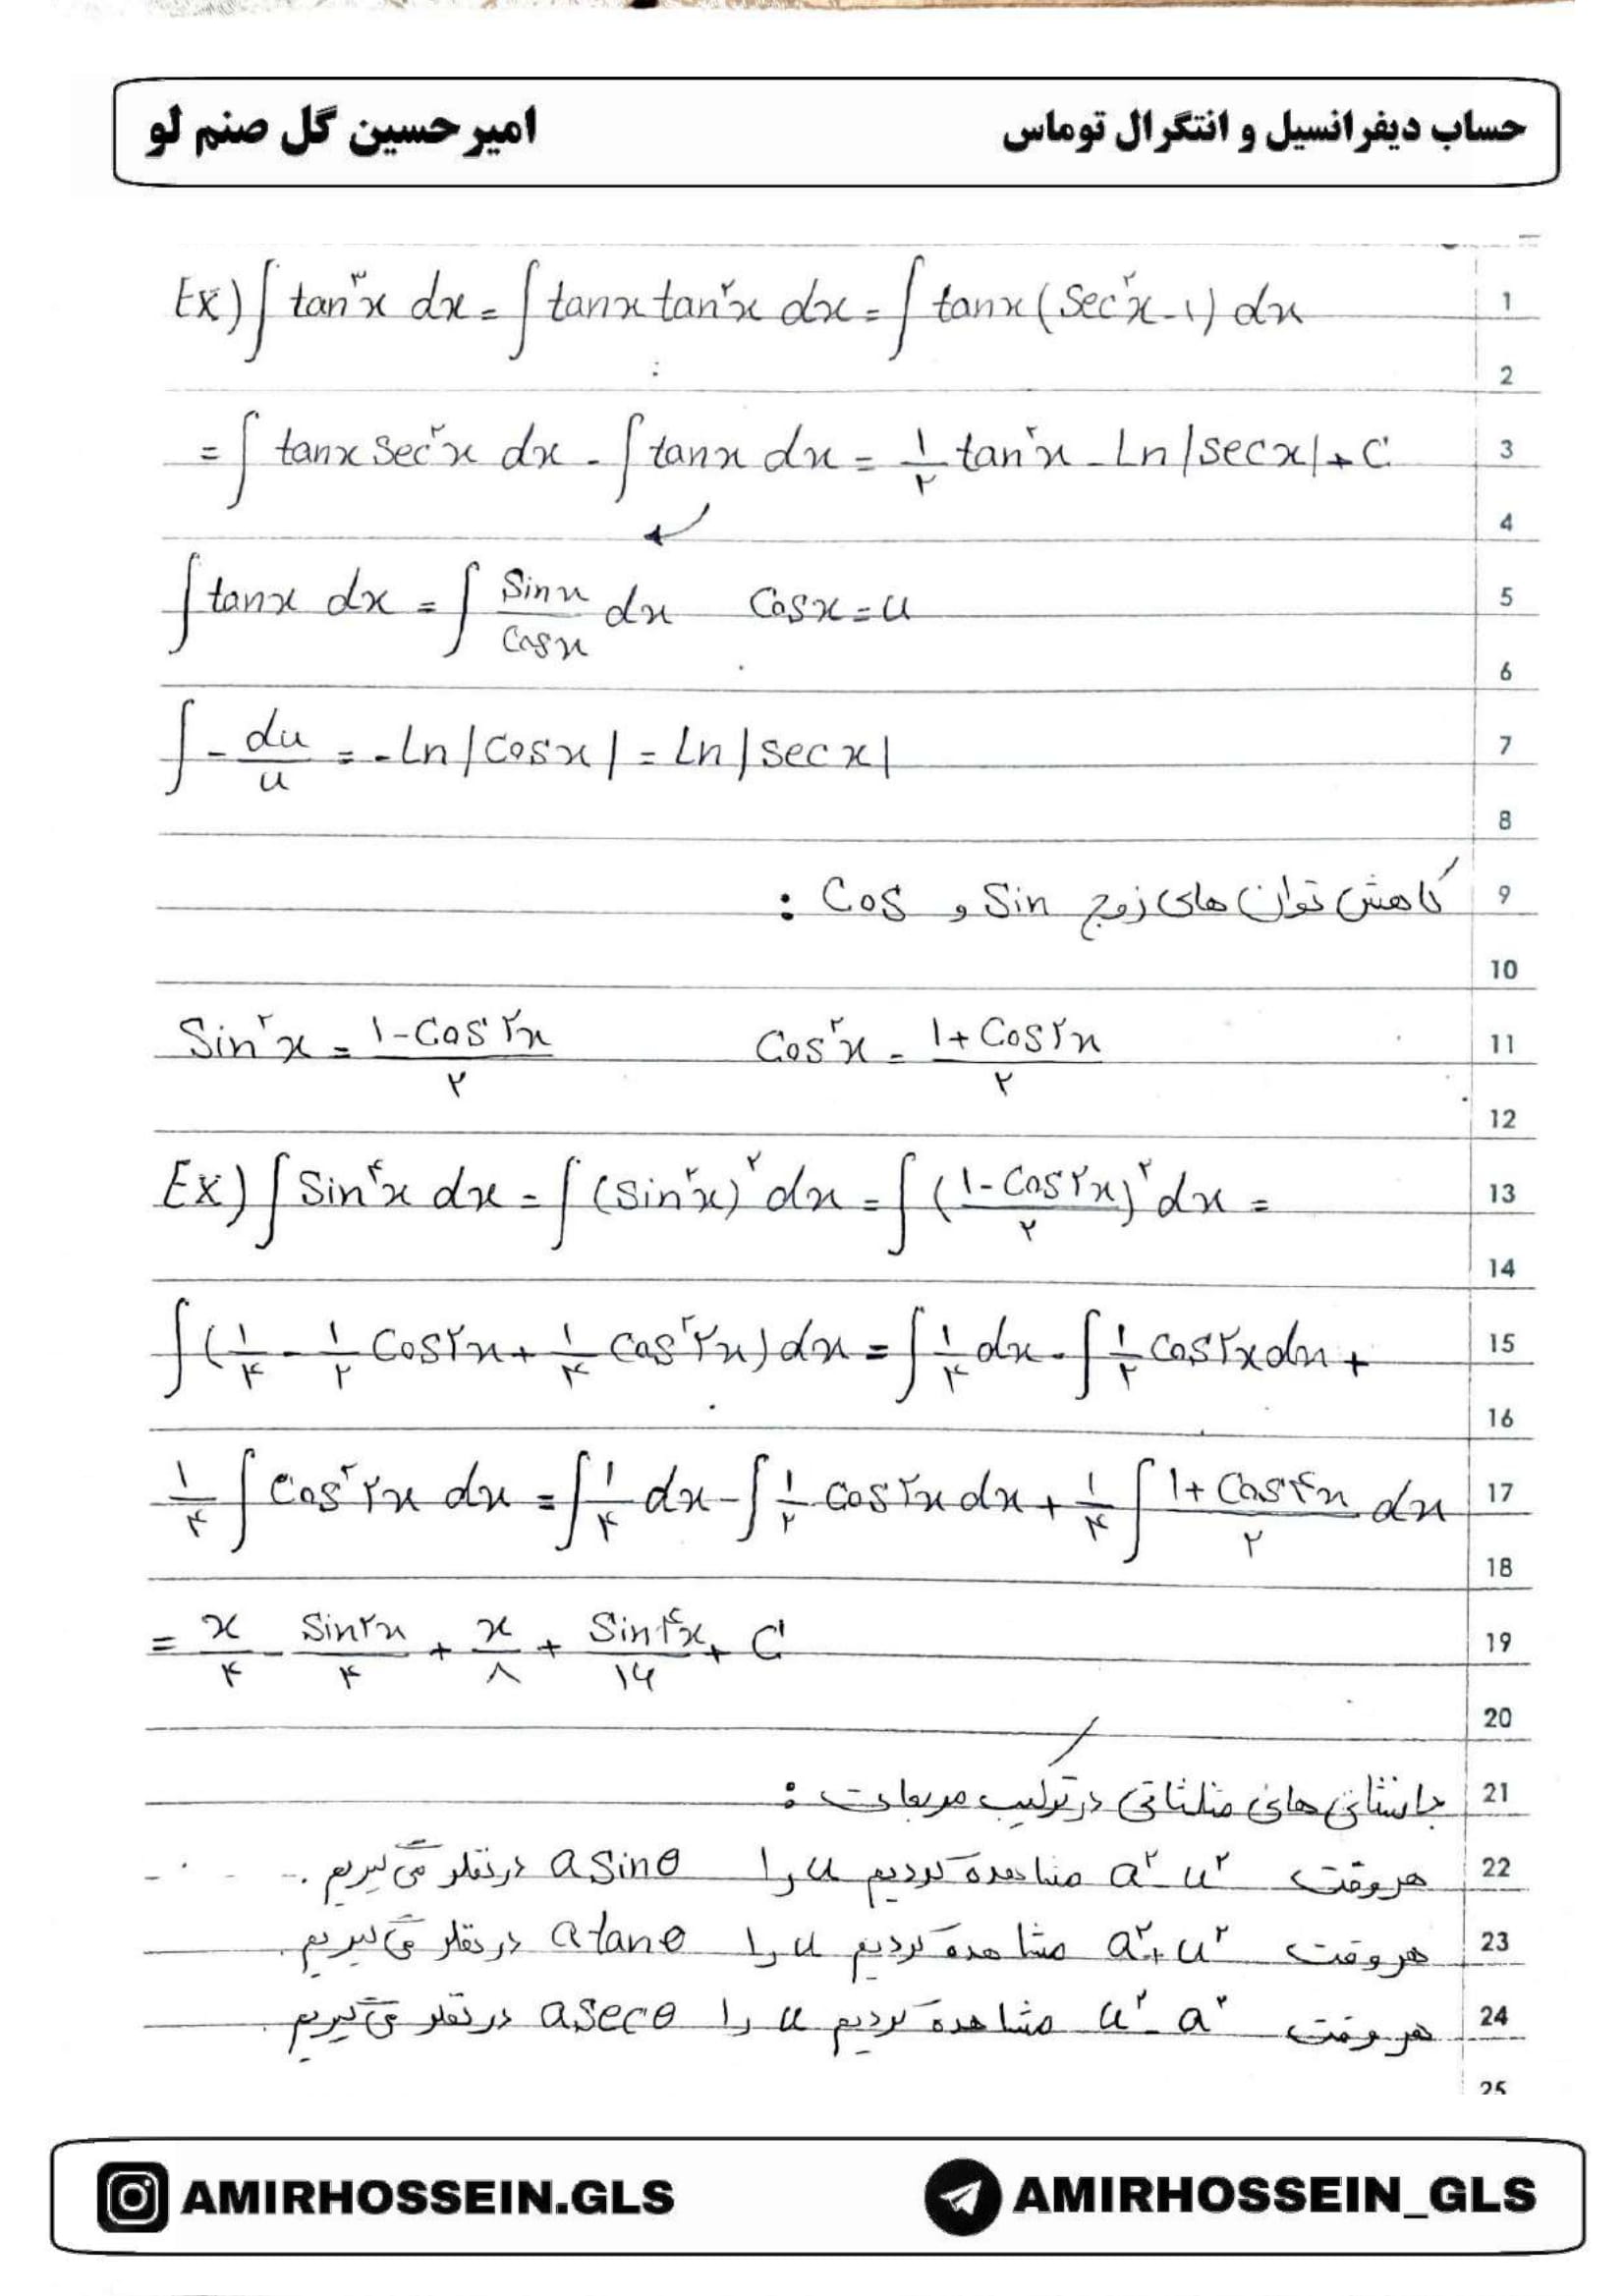 حساب دیفرانسیل و انتگرال توماس
امیرحسین گل صنم لو
Ex) ∫ tan^۳x dx = ∫ tanx tan^۲x dx = ∫ tanx (Sec^۲x - ۱) dx
1
2
= ∫ tanx Sec^۲x dx - ∫ tanx dx = ۱/۲ tan^۲x - Ln|secx| + C
3
4
∫ tanx dx = ∫ Sinx/Cosx dx Cosx = u
5
6
∫ - du/u = - Ln|Cosx| = Ln|secx|
7
8
کاهش توان های زوج Sin و Cos :
9
10
Sin^۲x = ۱-Cos۲x/۲ Cos^۲x = ۱+Cos۲x/۲
11
12
Ex) ∫ Sin^۴x dx = ∫ (Sin^۲x)^۲ dx = ∫ (۱-Cos۲x/۲)^۲ dx =
13
14
∫ (۱/۴ - ۱/۲ Cos۲x + ۱/۴ Cos^۲۲x) dx = ∫ ۱/۴ dx - ∫ ۱/۲ Cos۲x dx +
15
16
۱/۴ ∫ Cos^۲۲x dx = ∫ ۱/۴ dx - ∫ ۱/۲ Cos۲x dx + ۱/۴ ∫ ۱+Cos۴x/۲ dx
17
18
= x/۴ - Sin۲x/۴ + x/۸ + Sin۴x/۱۶ + C
19
20
جانشانی های مثلثاتی در ترکیب مربعات :
21
هر وقت a^۲ - u^۲ مشاهده کردیم u را a Sinθ در نظر می گیریم .
22
هر وقت a^۲ + u^۲ مشاهده کردیم u را a tanθ در نظر می گیریم .
23
هر وقت u^۲ - a^۲ مشاهده کردیم u را a Secθ در نظر می گیریم .
24
25
AMIRHOSSEIN.GLS
AMIRHOSSEIN_GLS